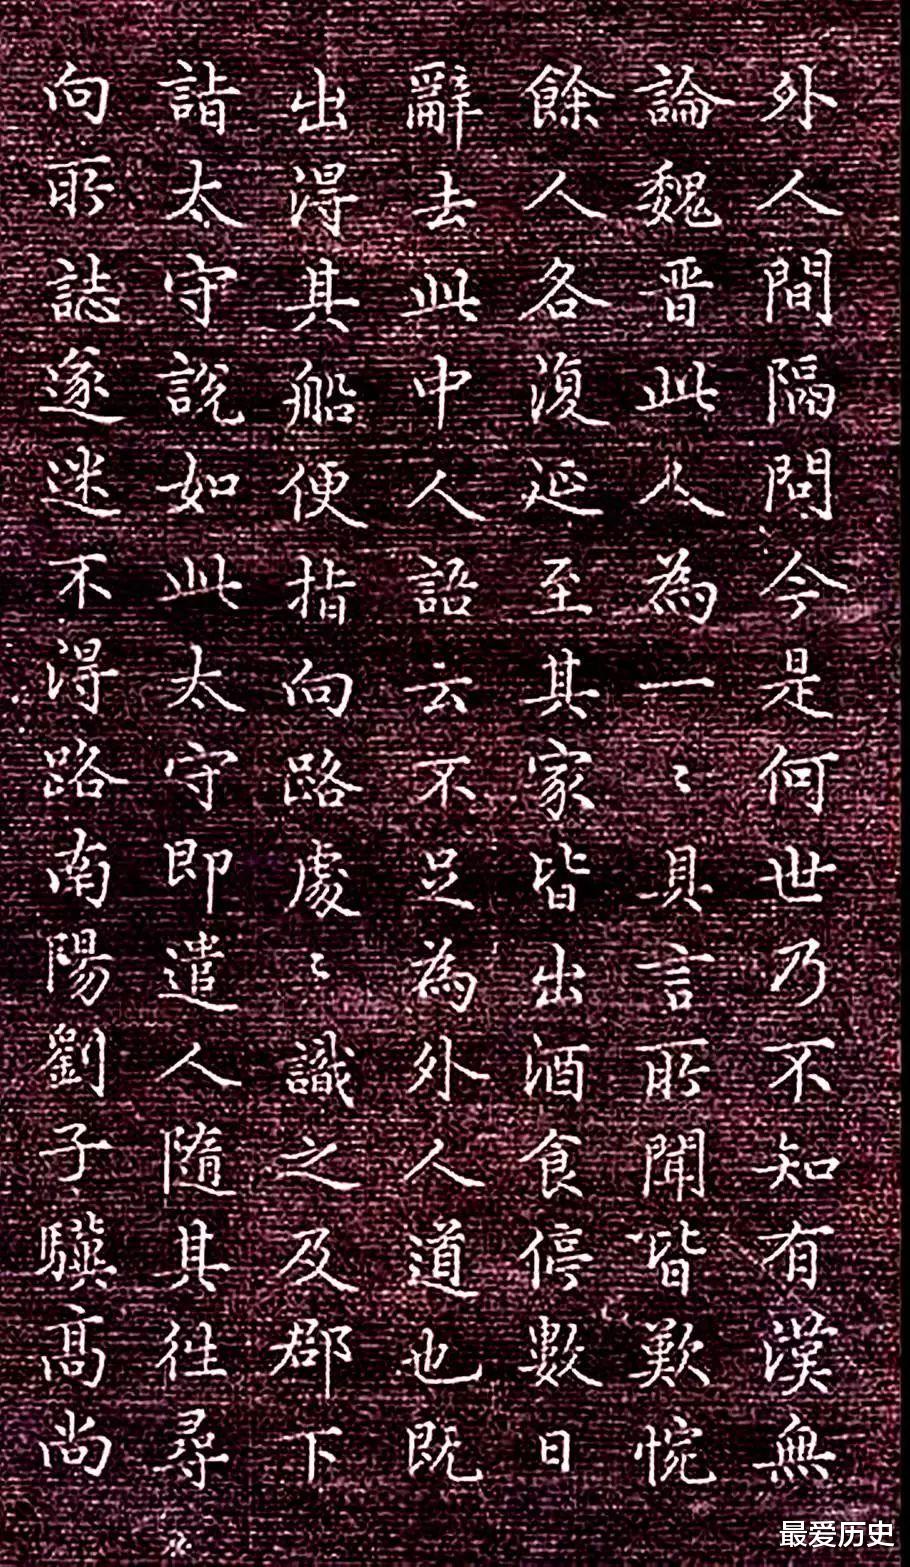 外人間隔問今是何世乃不知有漢無
論魏晋此人為一〻具言所聞皆歎惋
餘人各復延至其家皆出酒食停數日
辭去此中人語云不足為外人道也既
出得其船便指向路處〻識之及郡下
詣太守說如此太守即遣人隨其往尋
向所誌遂迷不得路南陽劉子驥高尚
最爱历史